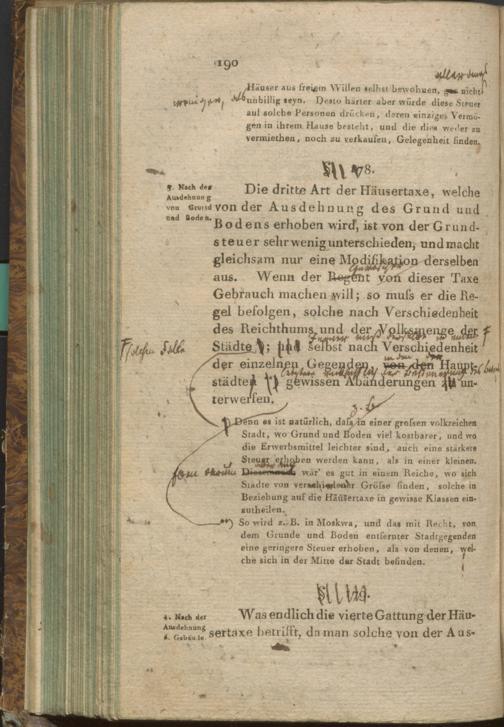 190
Häuser aus freiem Willen selbst bewohnen, nicht
unbillig seyn. Desto härter aber würde diese Steuer
auf solche Personen drücken, deren einziges Vermö-
gen in ihrem Hause besteht, und die dies weder zu
vermiethen, noch zu verkaufen, Gelegenheit finden.
3. Nach der
Ausdehnung
von Grund
und Boden.
Die dritte Art der Häusertaxe, welche
von der Ausdehnung des Grund und
Bodens erhoben wird, ist von der Grund-
steuer sehr wenig unterschieden, und macht
gleichsam nur eine Modifikation derselben
aus. Wenn der Regent von dieser Taxe
Gebrauch machen will; so muſs er die Re-
gel befolgen, solche nach Verschiedenheit
des Reichthums und der Volksmenge der
Städte; und selbst nach Verschiedenheit
der einzelnen Gegenden von den Haupt-
städten gewissen Abänderungen zu un-
terwerfen.
z. B.
Denn es ist natürlich, daſs in einer groſsen volkreichen
Stadt, wo Grund und Boden viel kostbarer, und wo
die Erwerbsmittel leichter sind, auch eine stärkere
Steuer erhoben werden kann, als in einer kleinen.
wär' es gut in einem Reiche, wo sich
Städte von verschiedener Gröſse finden, solche in
Beziehung auf die Häusertaxe in gewisse Klassen ein-
zutheilen.
So wird z. B. in Moskwa, und das mit Recht, von
dem Grunde und Boden entfernter Stadtgegenden
eine geringere Steuer erhoben, als von denen, wel-
che sich in der Mitte der Stadt befinden.
4. Nach der
Ausdehnung
d. Gebäude.
Was endlich die vierte Gattung der Häu-
sertaxe betrifft, da man solche von der Aus-